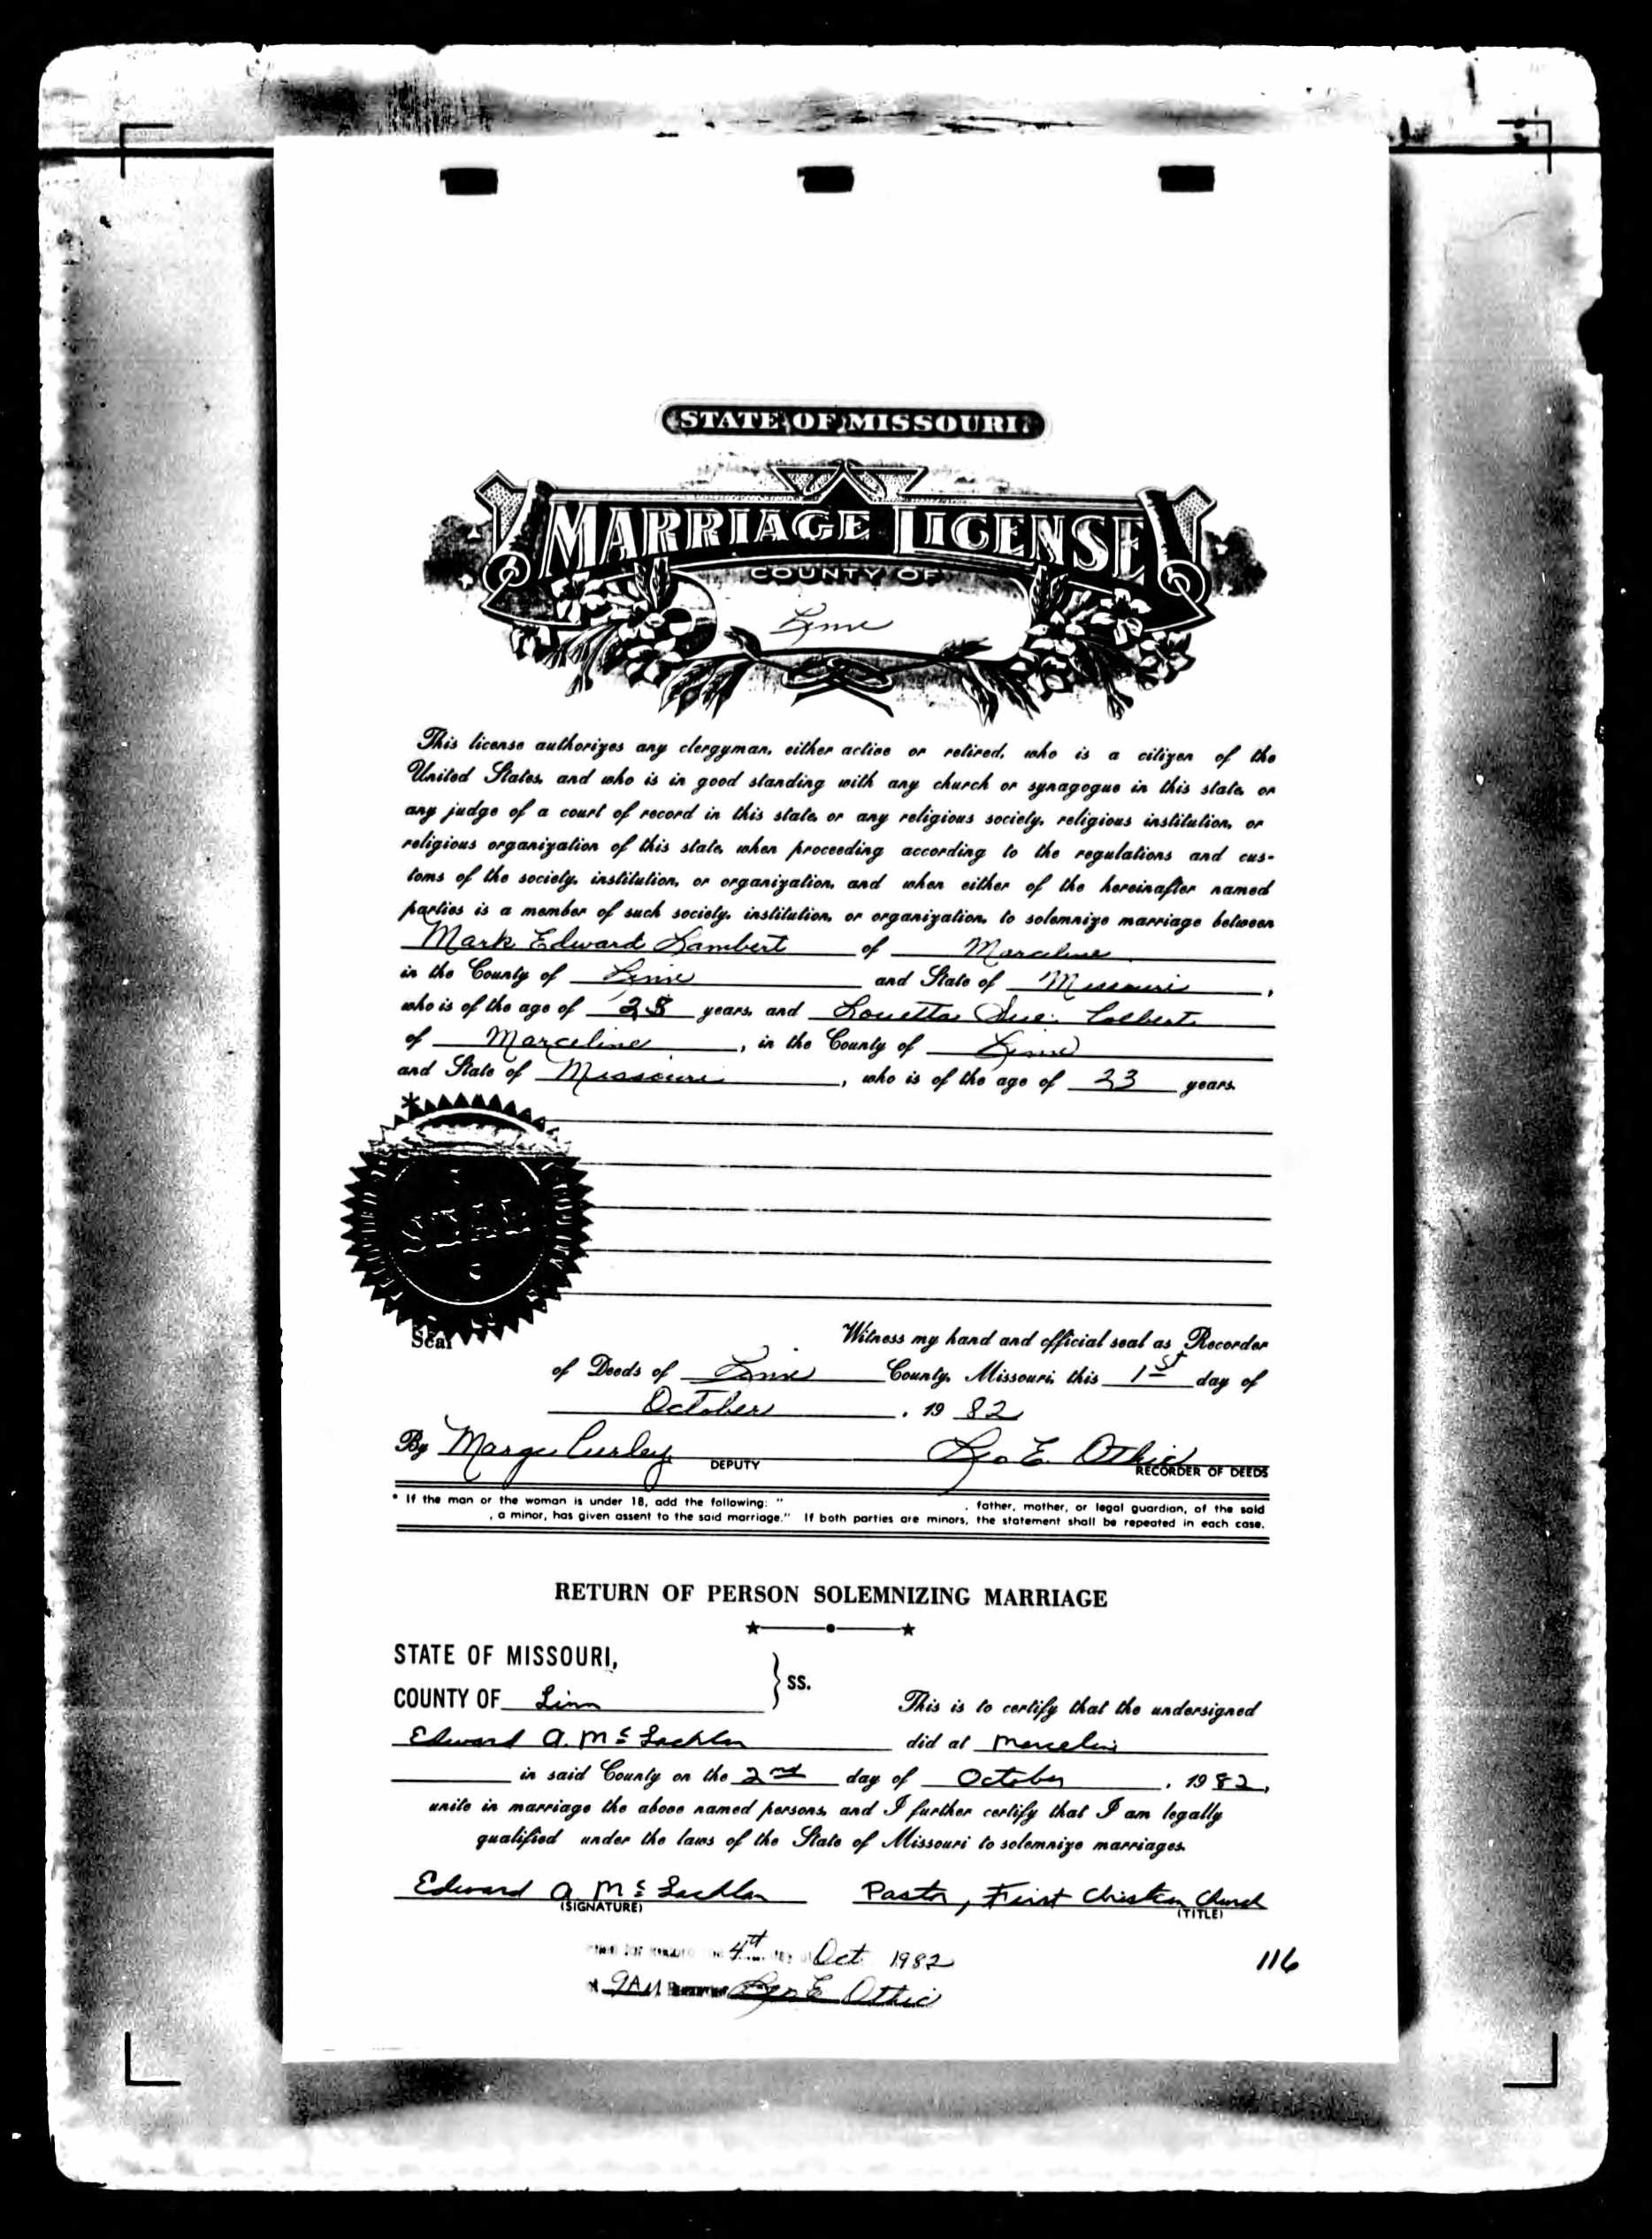 STATE OF MISSOURI
MARRIAGE LICENSE
COUNTY OF
Linn
This license authorizes any clergyman, either active or retired, who is a citizen of the
United States, and who is in good standing with any church or synagogue in this state, or
any judge of a court of record in this state, or any religious society, religious institution, or
religious organization of this state, when proceeding according to the regulations and cus-
toms of the society, institution, or organization, and when either of the hereinafter named
parties is a member of such society, institution, or organization, to solemnize marriage between
Mark Edward Lambert of Marceline
in the County of Linn and State of Missouri,
who is of the age of 28 years, and Louetta Sue Colbert
of Marceline, in the County of Linn
and State of Missouri, who is of the age of 23 years.
*
SEAL
Seal
Witness my hand and official seal as Recorder
of Deeds of Linn County, Missouri, this 1st day of
October, 19 82
By Marge Curley DEPUTY Leo E. Othic RECORDER OF DEEDS
* If the man or the woman is under 18, add the following: " , father, mother, or legal guardian, of the said
, a minor, has given assent to the said marriage." If both parties are minors, the statement shall be repeated in each case.
RETURN OF PERSON SOLEMNIZING MARRIAGE
STATE OF MISSOURI,
COUNTY OF Linn } SS.
This is to certify that the undersigned
Edward A. McLachlan did at Marceline
in said County on the 2nd day of October, 1982,
unite in marriage the above named persons, and I further certify that I am legally
qualified under the laws of the State of Missouri to solemnize marriages.
Edward A. McLachlan Pastor, First Christian Church
(SIGNATURE) (TITLE)
4th Oct 1982
116
9AM Leo E Othic